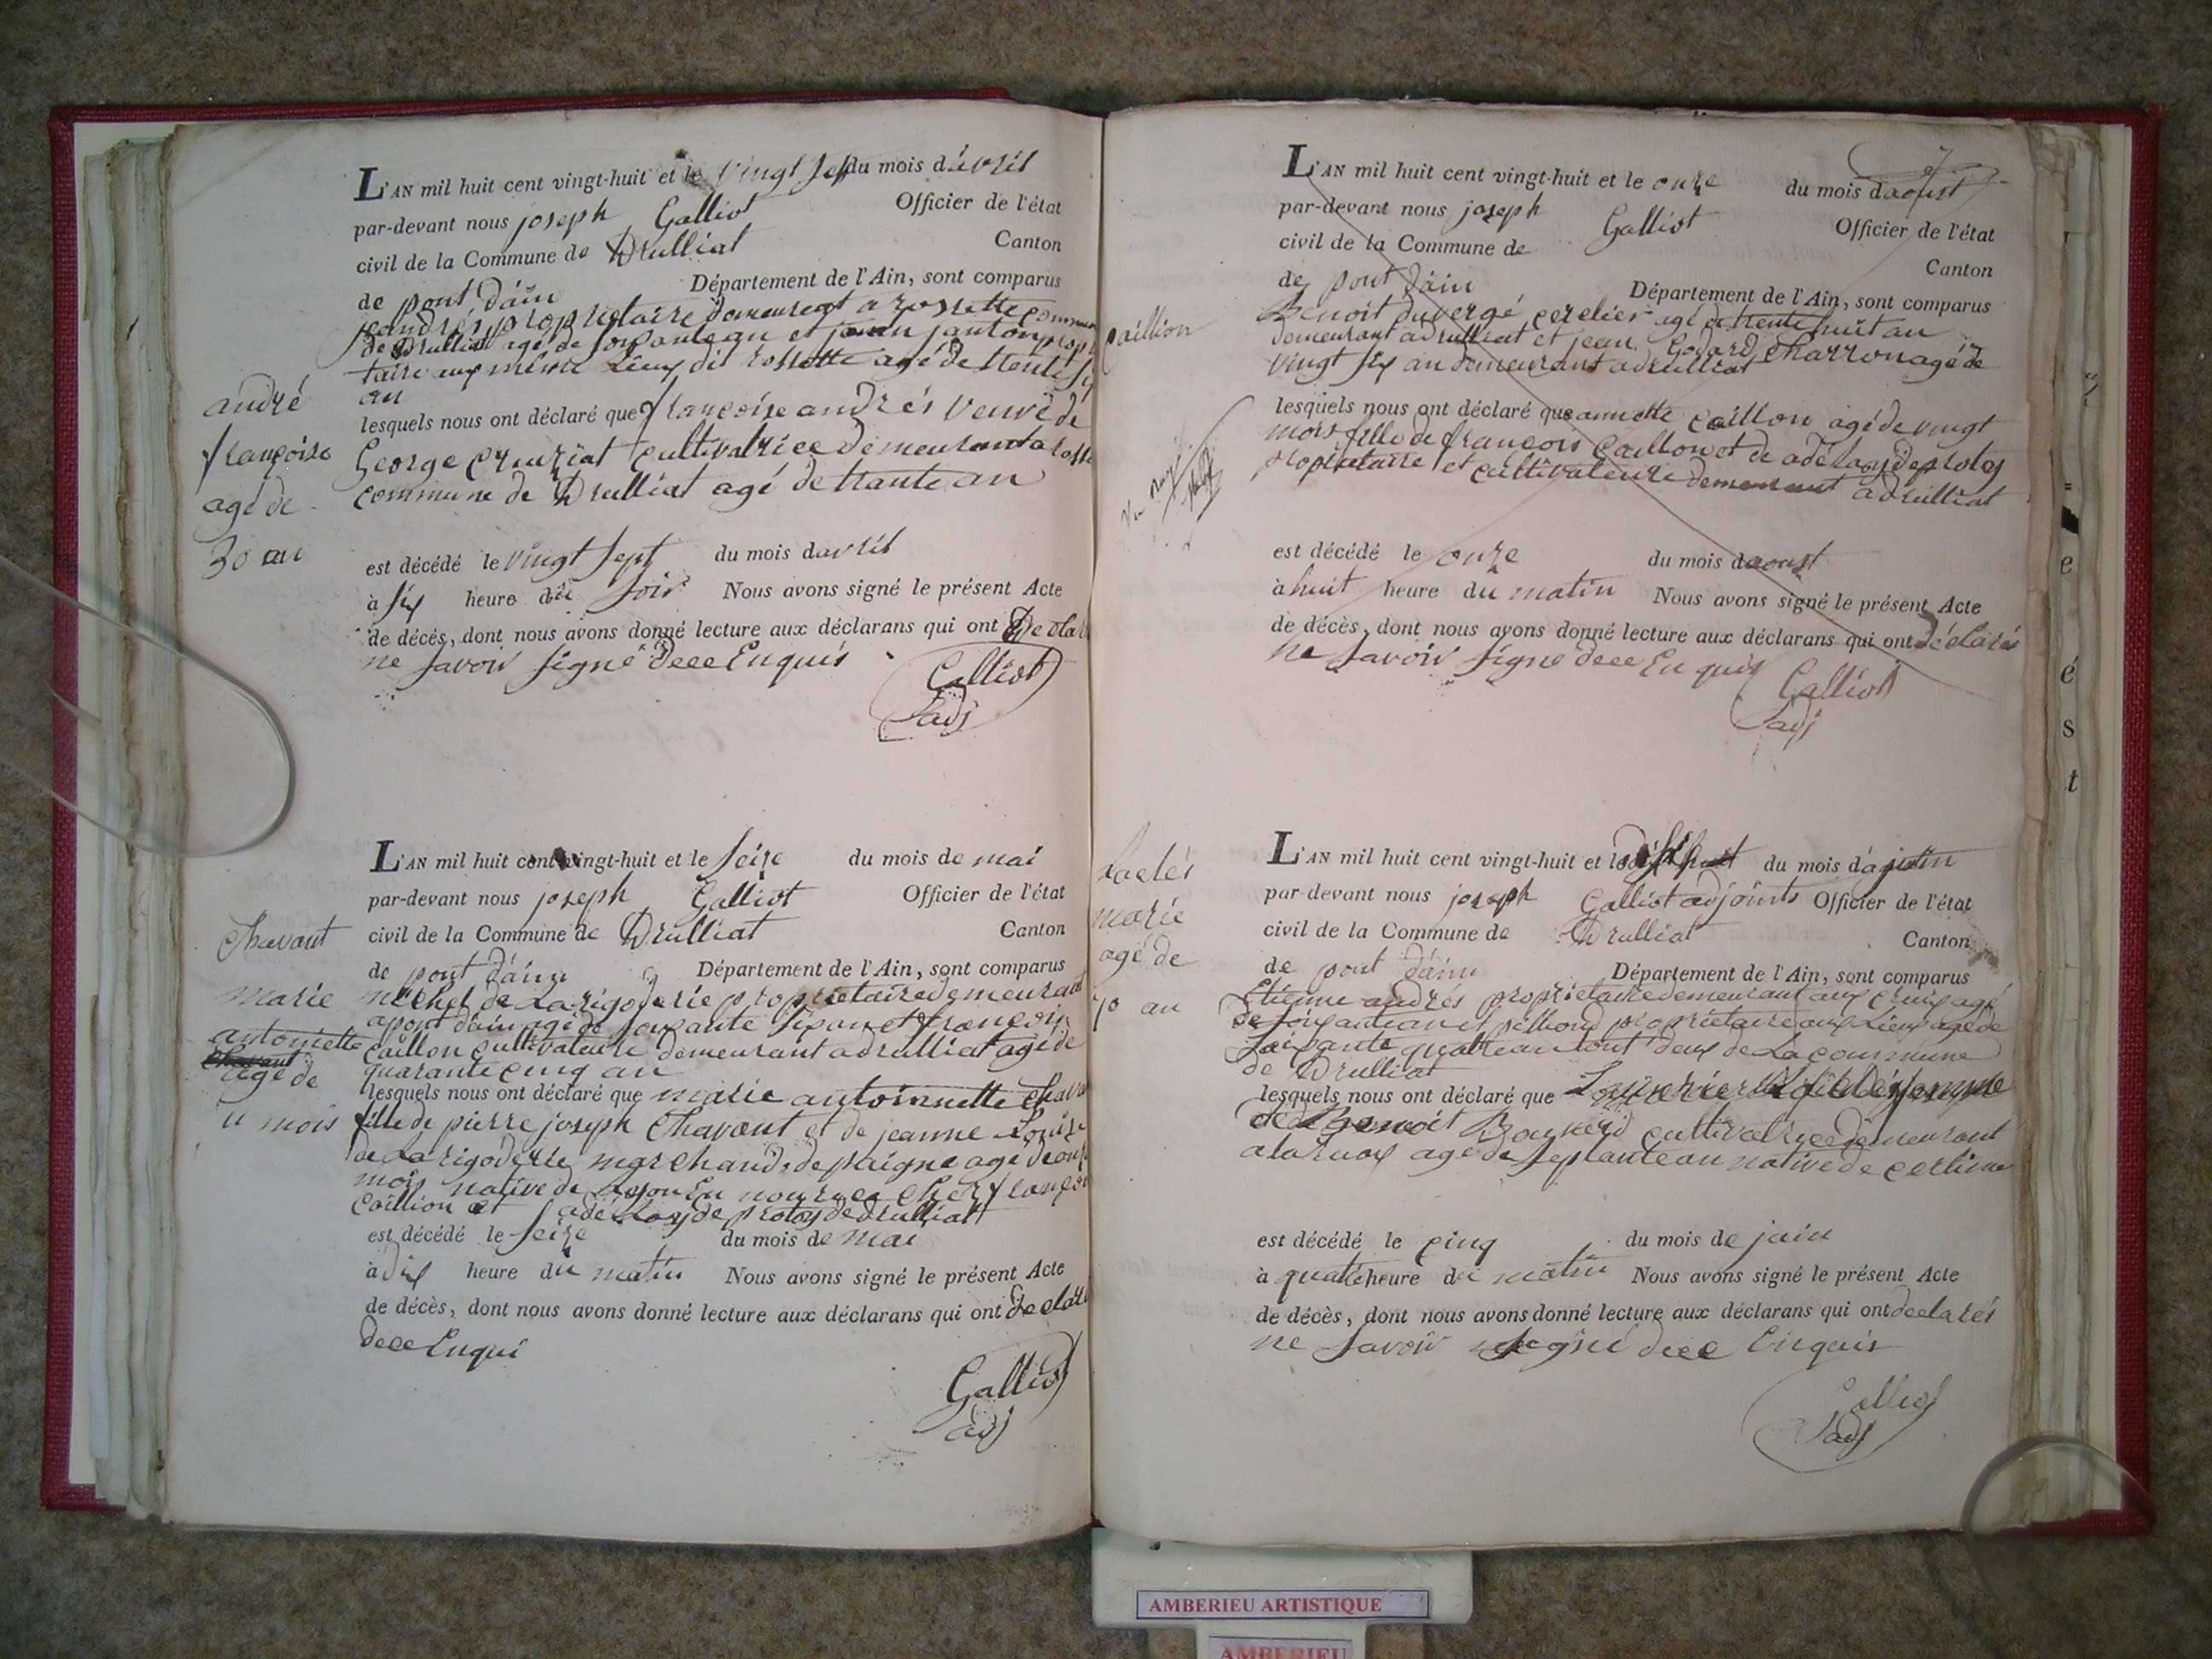 L'AN mil huit cent vingt-huit et le vingt sep du mois d'avril
par-devant nous joseph Galliot Officier de l'état
civil de la Commune de Drulliat Canton
de pont d'ain Département de l'Ain, sont comparus
propriétaire demeurent a rossette commune
de Drulliat agé de soixante an et jantom propr
taire aux même Lieux dit rossette agé de trente six
an
lesquels nous ont déclaré que françoise andrés veuve de
George cultivatrice demeurant a rosse
commune de Drulliat agé de trante an
est décédé le vingt sept du mois d'avril
à six heure du soir Nous avons signé le présent Acte
de décés, dont nous avons donné lecture aux déclarans qui ont Declar
ne savoir signé dece Enquis
Galliot
adj
andré
françoise
agé de
30 an
L'AN mil huit cent vingt-huit et le seize du mois de mai
par-devant nous joseph Galliot Officier de l'état
civil de la Commune de Drulliat Canton
de pont d'ain Département de l'Ain, sont comparus
michel de Larigoderie propriétaire demeurant
a pont dain agé de soixante six an et françois
caillon cultivateur demeurant a drulliat agé de
quarante cinq an
lesquels nous ont déclaré que marie antoinnette chava
fille de pierre joseph Chavant et de jeanne Louise
de Larigoderie marchand de paigne agé de onze
mois native de Lyon En nourice cher françois
caillion et adélayde protoy de drulliat
est décédé le seize du mois de mai
à dix heure du matin Nous avons signé le présent Acte
de décès, dont nous avons donné lecture aux déclarans qui ont declaré
dece Enqui
Galliot
adj
Chavant
marie
antoniette
agé de
11 mois
L'AN mil huit cent vingt-huit et le onze du mois d'aoust
par-devant nous joseph Galliot Officier de l'état
civil de la Commune de Canton
de pont d'ain Département de l'Ain, sont comparus
Benoit duvergé cerclier agé de trente huit an
demeurant a drulliat et jean Godard Charron agé de
vingt six an demeurant a drulliat
lesquels nous ont déclaré que annette caillon agé de vingt
mois fille de françois Caillon et de adélayde protoy
propietaire et cultivateure demeurant a drulliat
est décédé le onze du mois d'aoust
à huit heure du matin Nous avons signé le présent Acte
de décès, dont nous avons donné lecture aux déclarans qui ont déclarés
ne savoir signé dece En quis
Galliot
adj
caillion
L'AN mil huit cent vingt-huit et le du mois d'a juin
par devant nous joseph Galliot adjoints Officier de l'état
civil de la Commune de Drulliat Canton
de pont d'ain Département de l'Ain, sont comparus
Etienne andrés propriétaire demeurant aux agé
de soixante an et propriétaire aux Lieux agé de
soixante quatre an tout deux de La commune
de Drulliat
lesquels nous ont déclaré que
de Benoit cultivatrice demeurant
agé de septante an native de
est décédé le cinq du mois de juin
à quatre heure du matin Nous avons signé le présent Acte
de décès, dont nous avons donné lecture aux déclarans qui ont declarés
ne savoir signé dece Enquis
Galliot
adj
marie
agé de
70 an
e
é
s
t
AMBERIEU ARTISTIQUE
AMBERIEU